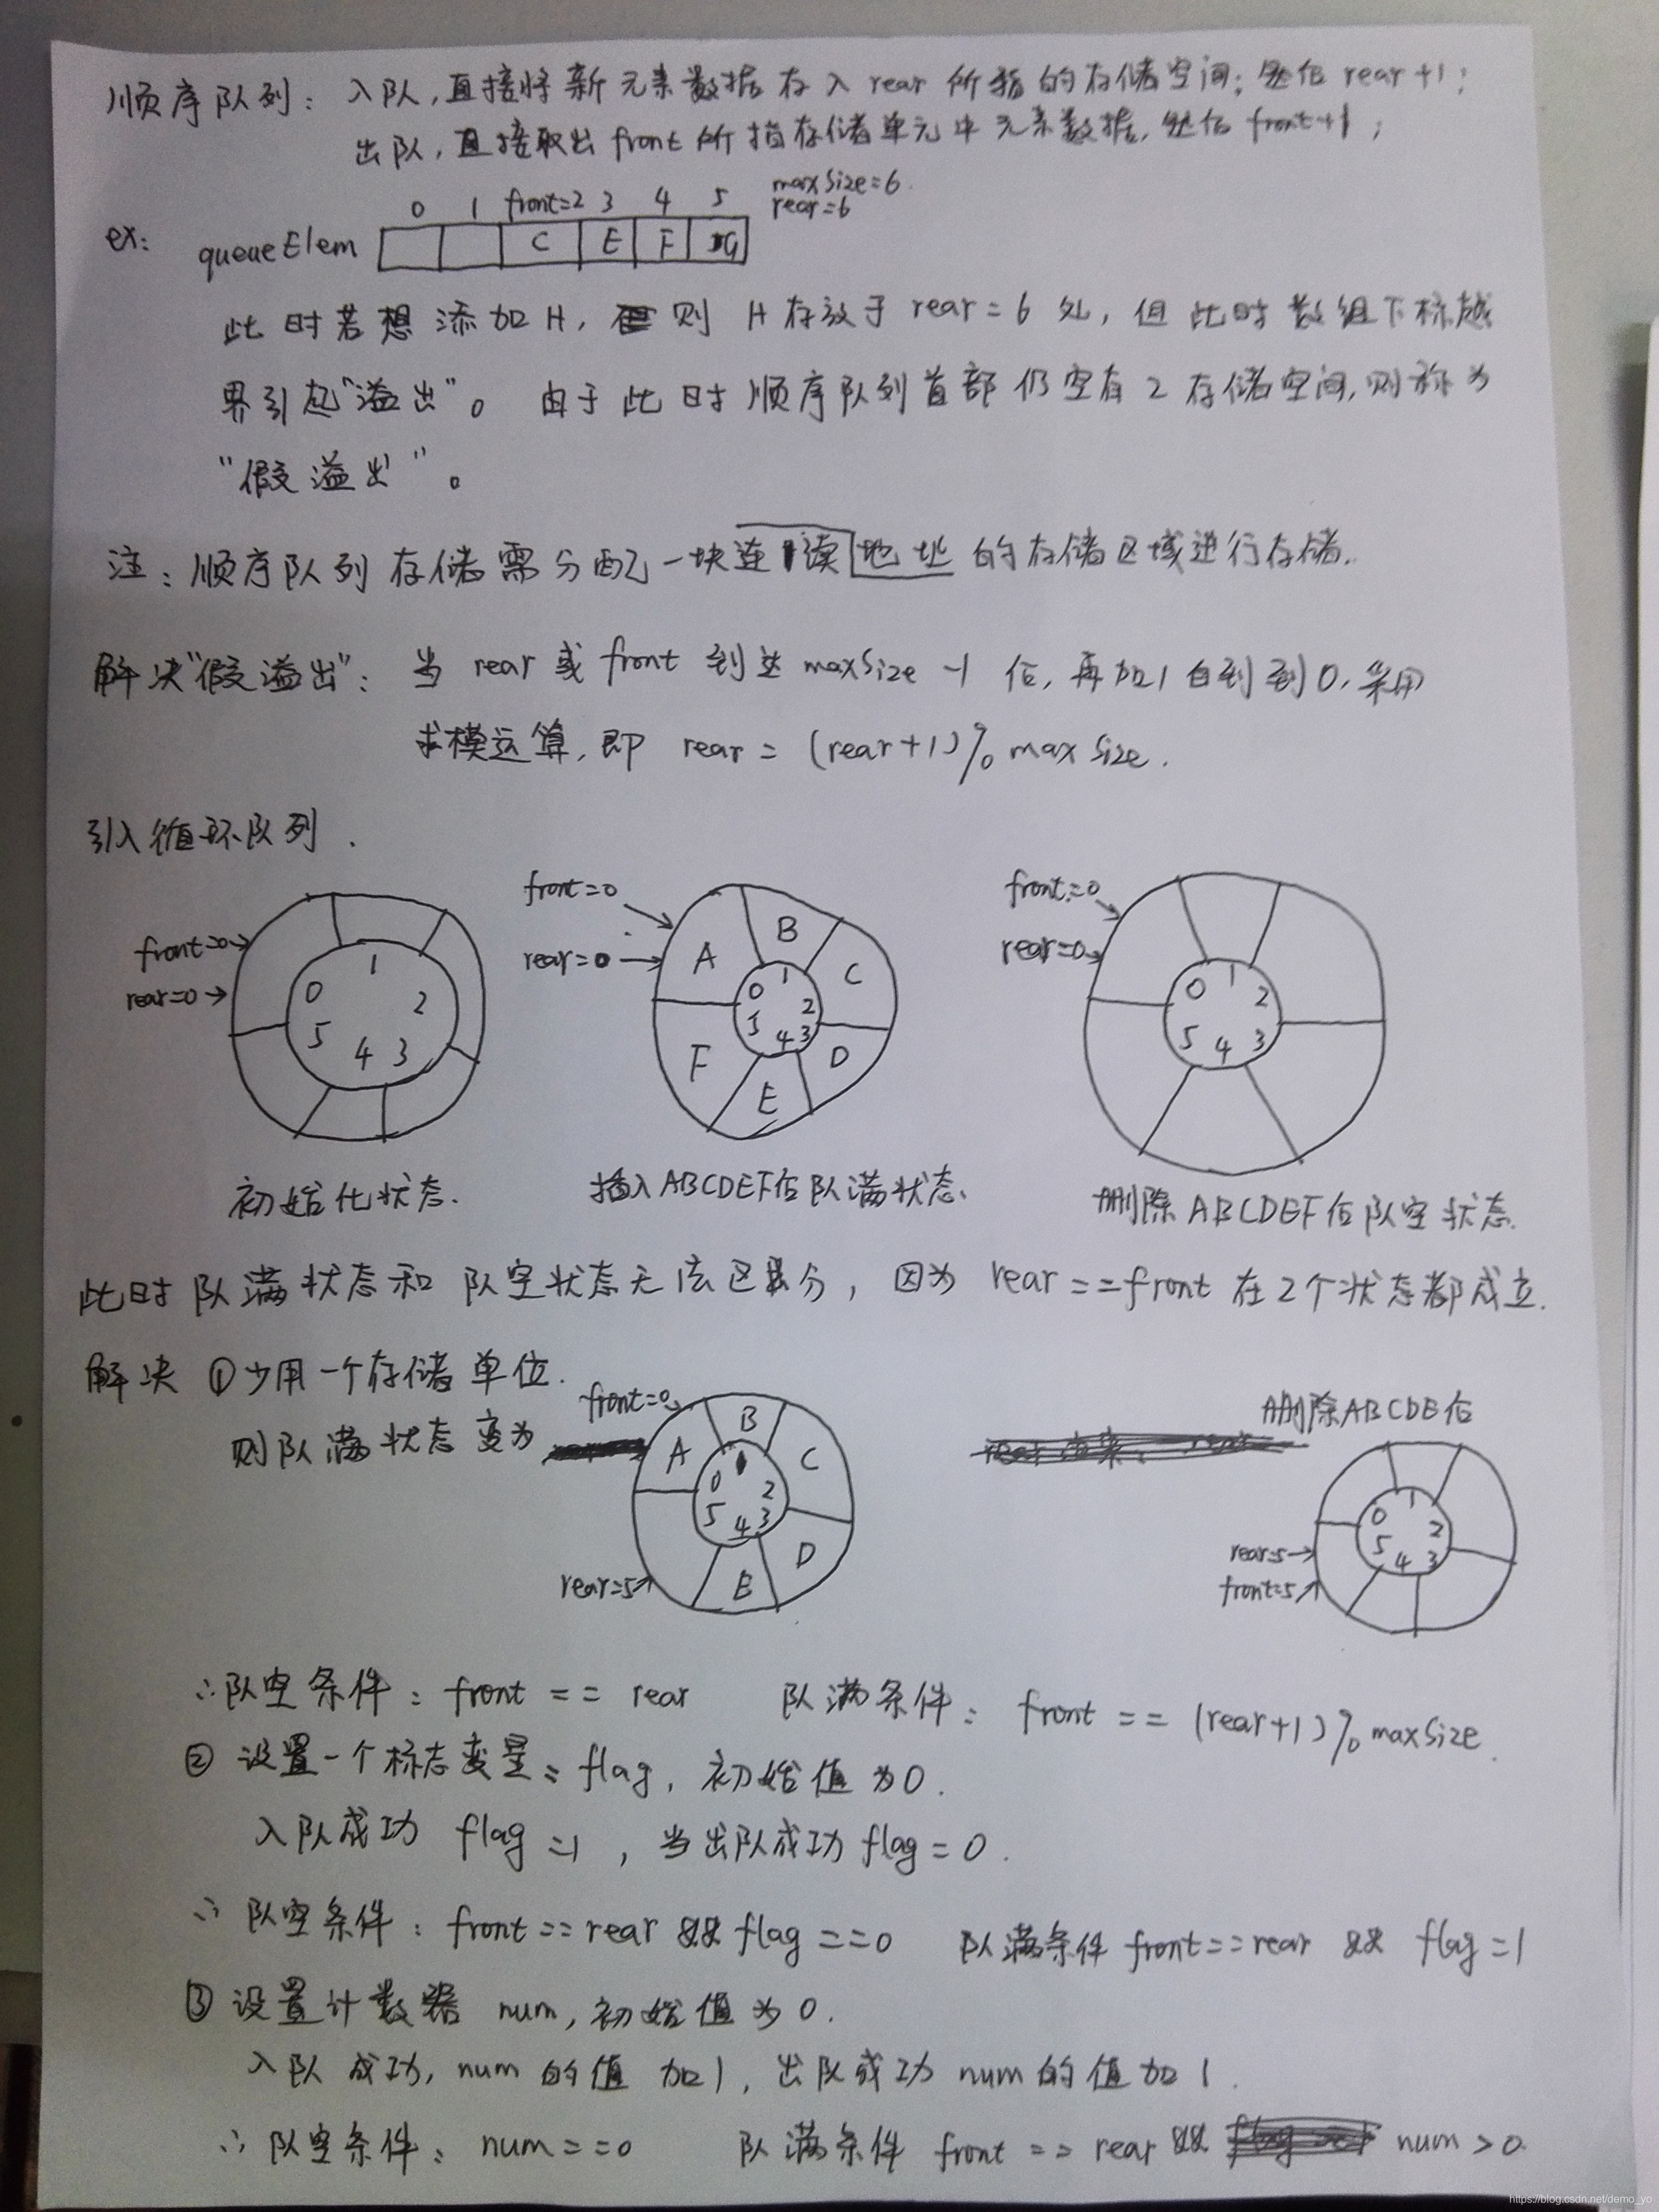 顺序队列：入队，直接将新元素数据存入rear所指的存储空间；然后rear+1；
出队，直接取出front所指存储单元中元素数据，然后front+1；
0 1 front=2 3 4 5 maxSize=6
rear=6
ex: queueElem C E F G
此时若想添加H，则H存放于rear=6处，但此时数组下标越
界引起"溢出"。由于此时顺序队列首部仍空有2存储空间，则称为
"假溢出"。
注：顺序队列存储需分配一块连读地址的存储区域进行存储.
解决"假溢出"：当rear或front到达maxSize-1后，再加1自到到0，采用
求模运算，即 rear = (rear+1)%maxSize.
引入循环队列.
front=0
rear=0
0 1 2 3 4 5
初始化状态.
front=0
rear=0
A B C D E F
0 1 2 3 4 5
插入ABCDEF后队满状态、
front=0
rear=0
0 1 2 3 4 5
删除ABCDEF后队空状态.
此时队满状态和队空状态无法区分，因为rear==front在2个状态都成立.
解决 ①少用一个存储单位.
则队满状态变为
front=0
A B C D E
0 2 3 4 5
rear=5
删除ABCDE后
0 1 2 3 4 5
rear=5
front=5
∴队空条件：front == rear 队满条件：front == (rear+1)%maxSize.
② 设置一个标志变量：flag，初始值为0.
入队成功 flag=1，当出队成功flag=0.
∴ 队空条件：front==rear && flag==0 队满条件 front==rear && flag=1
③ 设置计数器 num，初始值为0.
入队成功，num的值加1，出队成功num的值加1.
∴ 队空条件：num==0 队满条件 front == rear && num>0.
https://blog.csdn.net/demo_yo